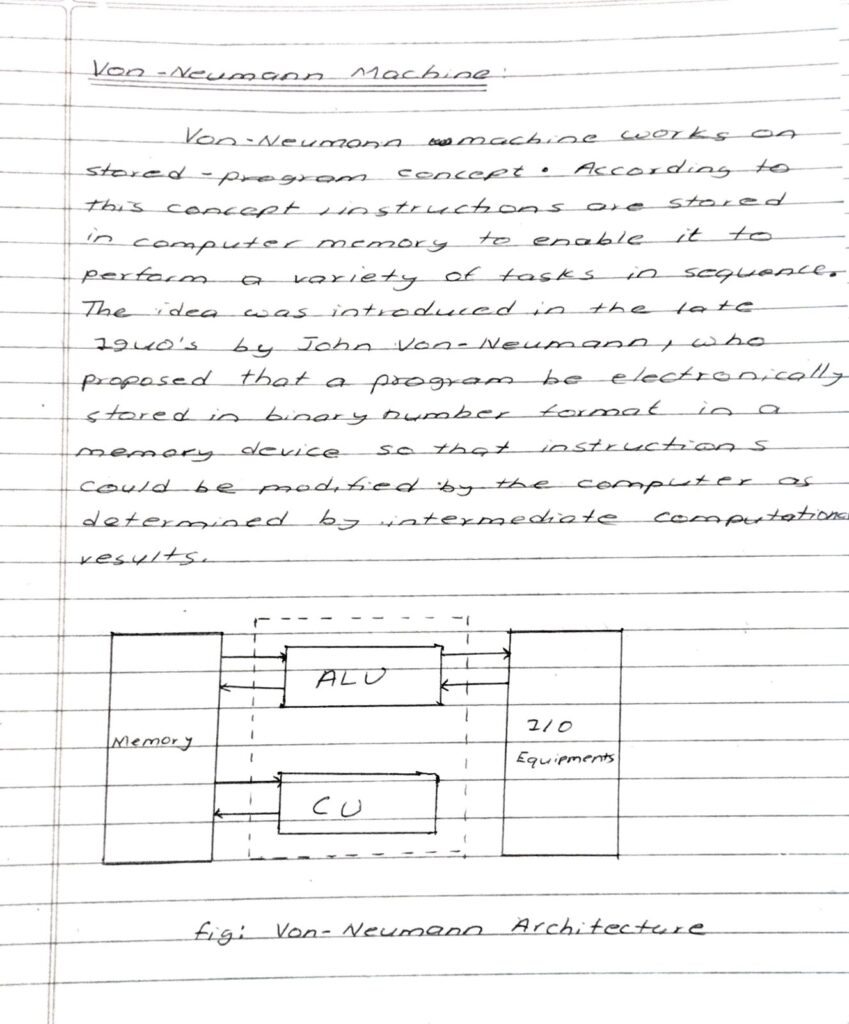 Von-Neumann Machine:
Von-Neumann machine works on
stored-program concept. According to
this concept, instructions are stored
in computer memory to enable it to
perform a variety of tasks in sequence.
The idea was introduced in the late
1940's by John Von-Neumann, who
proposed that a program be electronically
stored in binary number format in a
memory device so that instructions
could be modified by the computer as
determined by intermediate computational
results.
ALU
Memory
I/O
Equipments
CU
fig: Von-Neumann Architecture